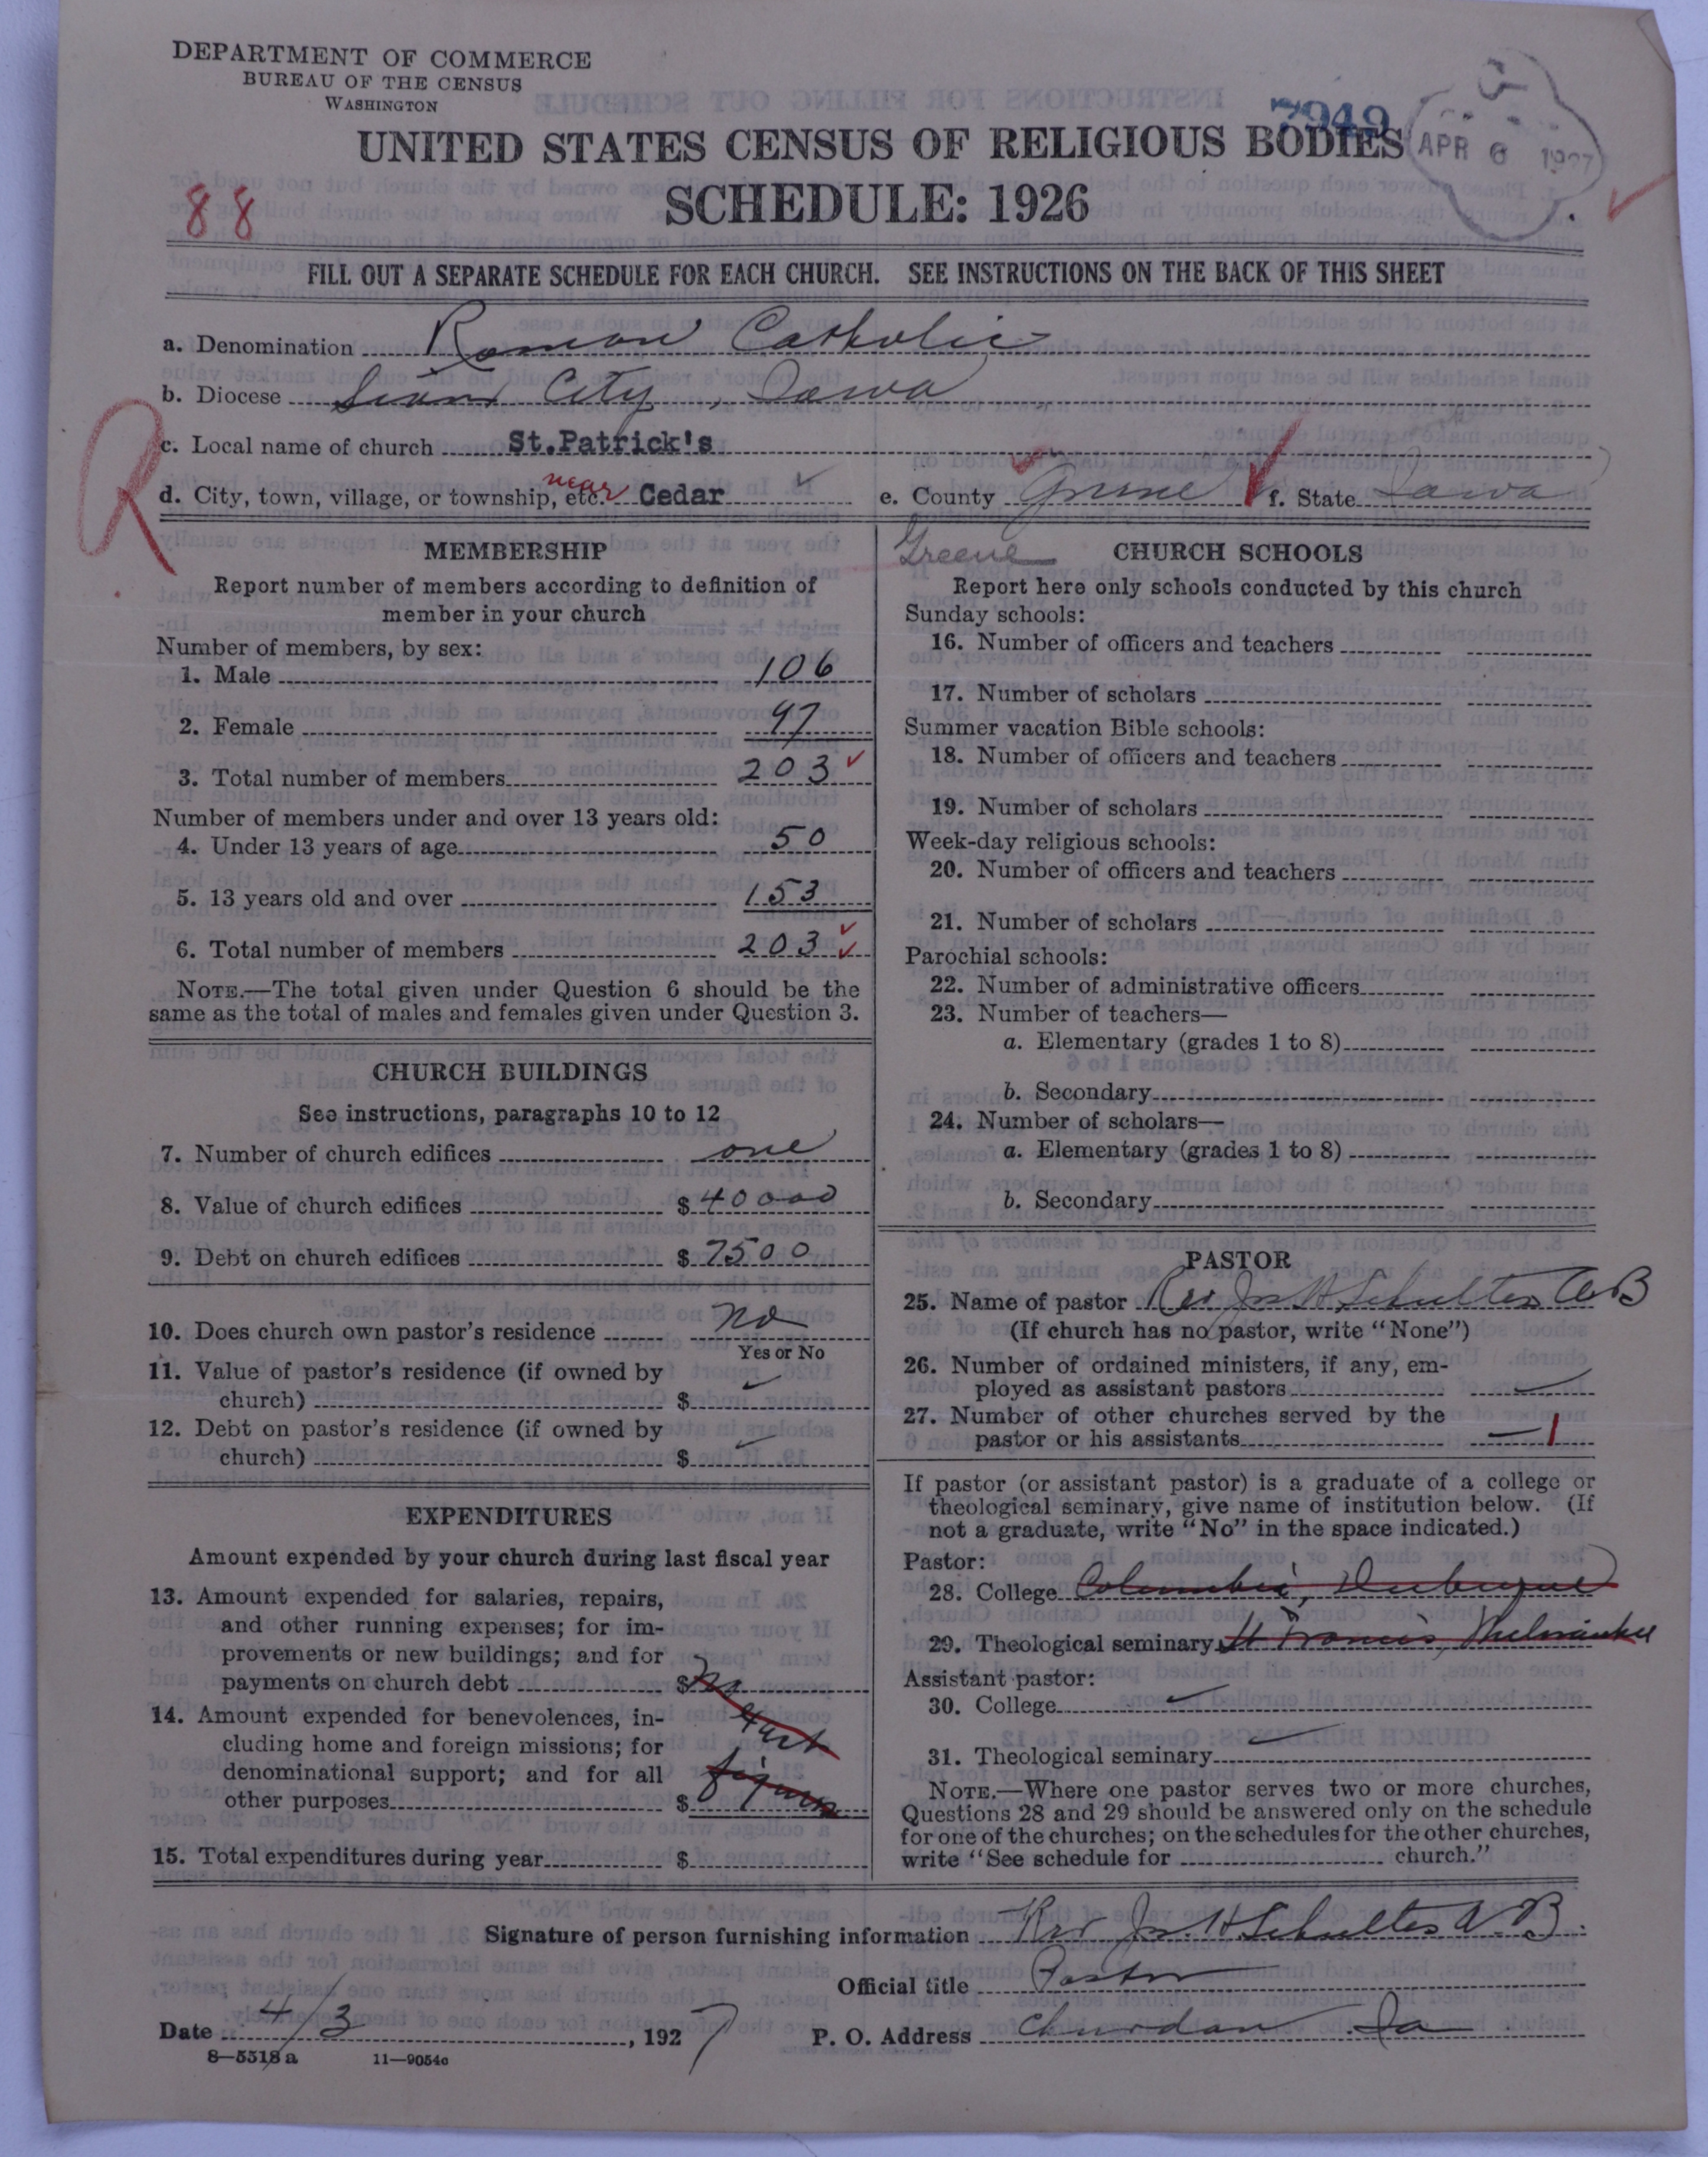 DEPARTMENT OF COMMERCE
BUREAU OF THE CENSUS
WASHINGTON
7949
APR 6 1927
UNITED STATES CENSUS OF RELIGIOUS BODIES
SCHEDULE: 1926
88
FILL OUT A SEPARATE SCHEDULE FOR EACH CHURCH. SEE INSTRUCTIONS ON THE BACK OF THIS SHEET
a. Denomination Roman Catholic
b. Diocese Sioux City, Iowa
R
c. Local name of church St.Patrick's
d. City, town, village, or township, etc. near Cedar e. County Greene f. State Iowa
Greene
MEMBERSHIP
Report number of members according to definition of
member in your church
Number of members, by sex:
1. Male 106
2. Female 97
3. Total number of members 203
Number of members under and over 13 years old:
4. Under 13 years of age 50
5. 13 years old and over 153
6. Total number of members 203
NOTE.—The total given under Question 6 should be the
same as the total of males and females given under Question 3.
CHURCH BUILDINGS
See instructions, paragraphs 10 to 12
7. Number of church edifices one
8. Value of church edifices $ 40000
9. Debt on church edifices $ 7500
10. Does church own pastor's residence no
Yes or No
11. Value of pastor's residence (if owned by
church) $
12. Debt on pastor's residence (if owned by
church) $
EXPENDITURES
Amount expended by your church during last fiscal year
13. Amount expended for salaries, repairs,
and other running expenses; for im-
provements or new buildings; and for
payments on church debt $ no
14. Amount expended for benevolences, in-
cluding home and foreign missions; for
denominational support; and for all
other purposes $ figures
15. Total expenditures during year $
CHURCH SCHOOLS
Report here only schools conducted by this church
Sunday schools:
16. Number of officers and teachers
17. Number of scholars
Summer vacation Bible schools:
18. Number of officers and teachers
19. Number of scholars
Week-day religious schools:
20. Number of officers and teachers
21. Number of scholars
Parochial schools:
22. Number of administrative officers
23. Number of teachers—
a. Elementary (grades 1 to 8)
b. Secondary
24. Number of scholars—
a. Elementary (grades 1 to 8)
b. Secondary
PASTOR
25. Name of pastor Rev Jn. H Schultes A B
(If church has no pastor, write "None")
26. Number of ordained ministers, if any, em-
ployed as assistant pastors
27. Number of other churches served by the
pastor or his assistants — 1
If pastor (or assistant pastor) is a graduate of a college or
theological seminary, give name of institution below. (If
not a graduate, write "No" in the space indicated.)
Pastor:
28. College Columbia, Dubuque
29. Theological seminary St Francis, Milwaukee
Assistant pastor:
30. College
31. Theological seminary
NOTE.—Where one pastor serves two or more churches,
Questions 28 and 29 should be answered only on the schedule
for one of the churches; on the schedules for the other churches,
write "See schedule for church."
Signature of person furnishing information Rev Jn. H Schultes A. B.
Official title Pastor
Date 4/3, 1927 P. O. Address Churdan Ia
8—5518 a 11—9054c